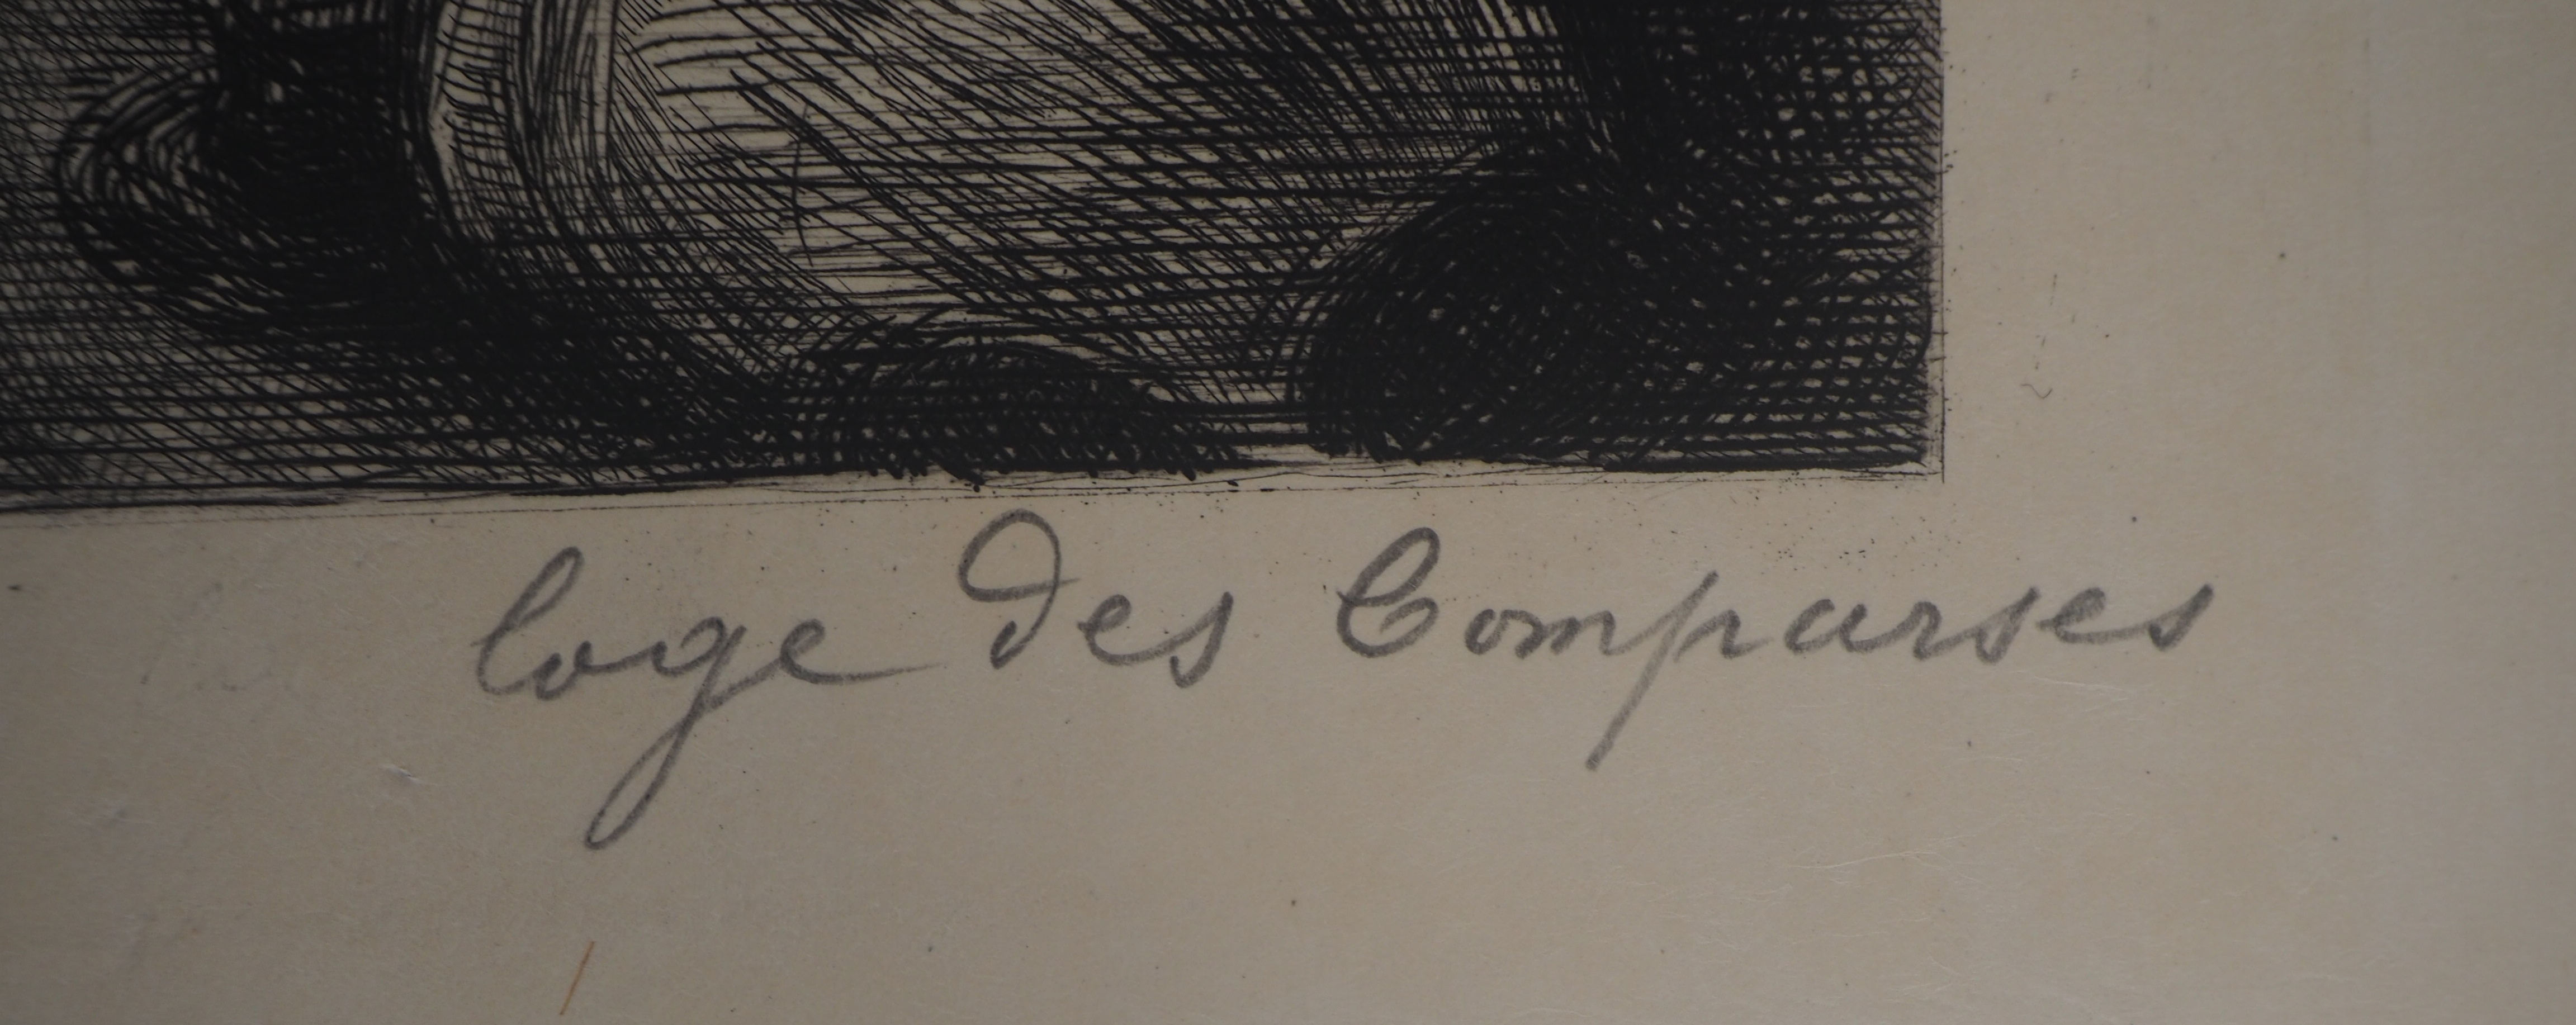 loge des Comparses